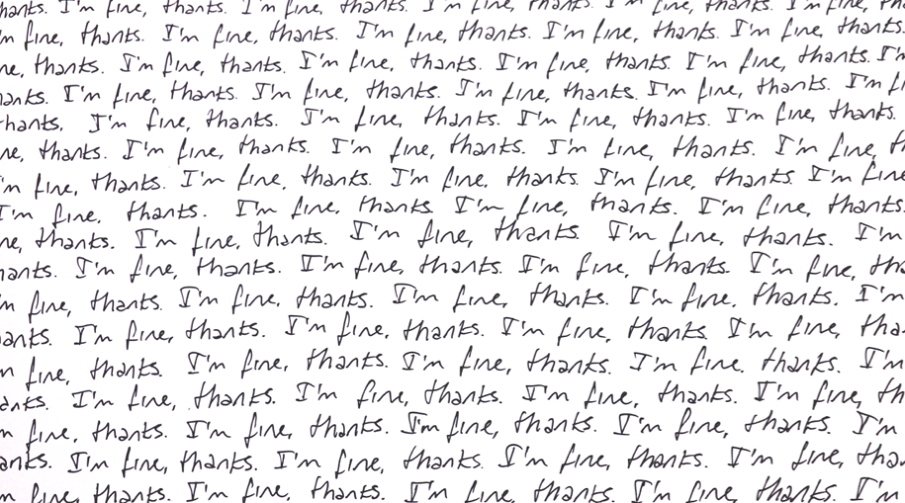 thanks. I'm fine, thanks. I'm fine, thanks. I'm fine, thanks. I'm fine, thanks. I'm fine,
fine, thanks. I'm fine, thanks. I'm fine, thanks. I'm fine, thanks. I'm fine, thanks.
thanks. I'm fine, thanks. I'm fine, thanks. I'm fine, thanks. I'm fine, thanks. I'm
I'm fine, thanks. I'm fine, thanks. I'm fine, thanks. I'm fine, thanks. I'm
thanks. I'm fine, thanks. I'm fine, thanks. I'm fine, thanks. I'm fine, thanks.
thanks. I'm fine, thanks. I'm fine, thanks. I'm fine, thanks. I'm fine,
fine, thanks. I'm fine, thanks. I'm fine, thanks. I'm fine, thanks. I'm fine
I'm fine, thanks. I'm fine, thanks I'm fine, thanks. I'm fine, thanks.
thanks. I'm fine, thanks. I'm fine, thanks. I'm fine, thanks. I'm
I'm fine, thanks. I'm fine, thanks. I'm fine, thanks. I'm fine,
fine, thanks. I'm fine, thanks. I'm fine, thanks. I'm fine, thanks. I'm
I'm fine, thanks. I'm fine, thanks. I'm fine, thanks. I'm fine,
fine, thanks. I'm fine, thanks. I'm fine, thanks. I'm fine. thanks. I'm
I'm fine, thanks. I'm fine, thanks. I'm fine, thanks. I'm fine,
fine, thanks. I'm fine, thanks. I'm fine, thanks. I'm fine, thanks. I'm
I'm fine, thanks. I'm fine, thanks. I'm fine, thanks. I'm fine,
fine, thanks. I'm fine, thanks. I'm fine, thanks. I'm fine, thanks. I'm